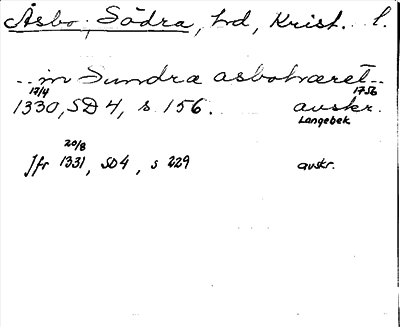 Åsbo, Södra, hd, Krist. l.
..in Sundra asbohæret..
17/4 1756
1330, SD 4, s 156. avskr.
Langebek
20/8
Jfr 1331, SD4, s 229 avskr.